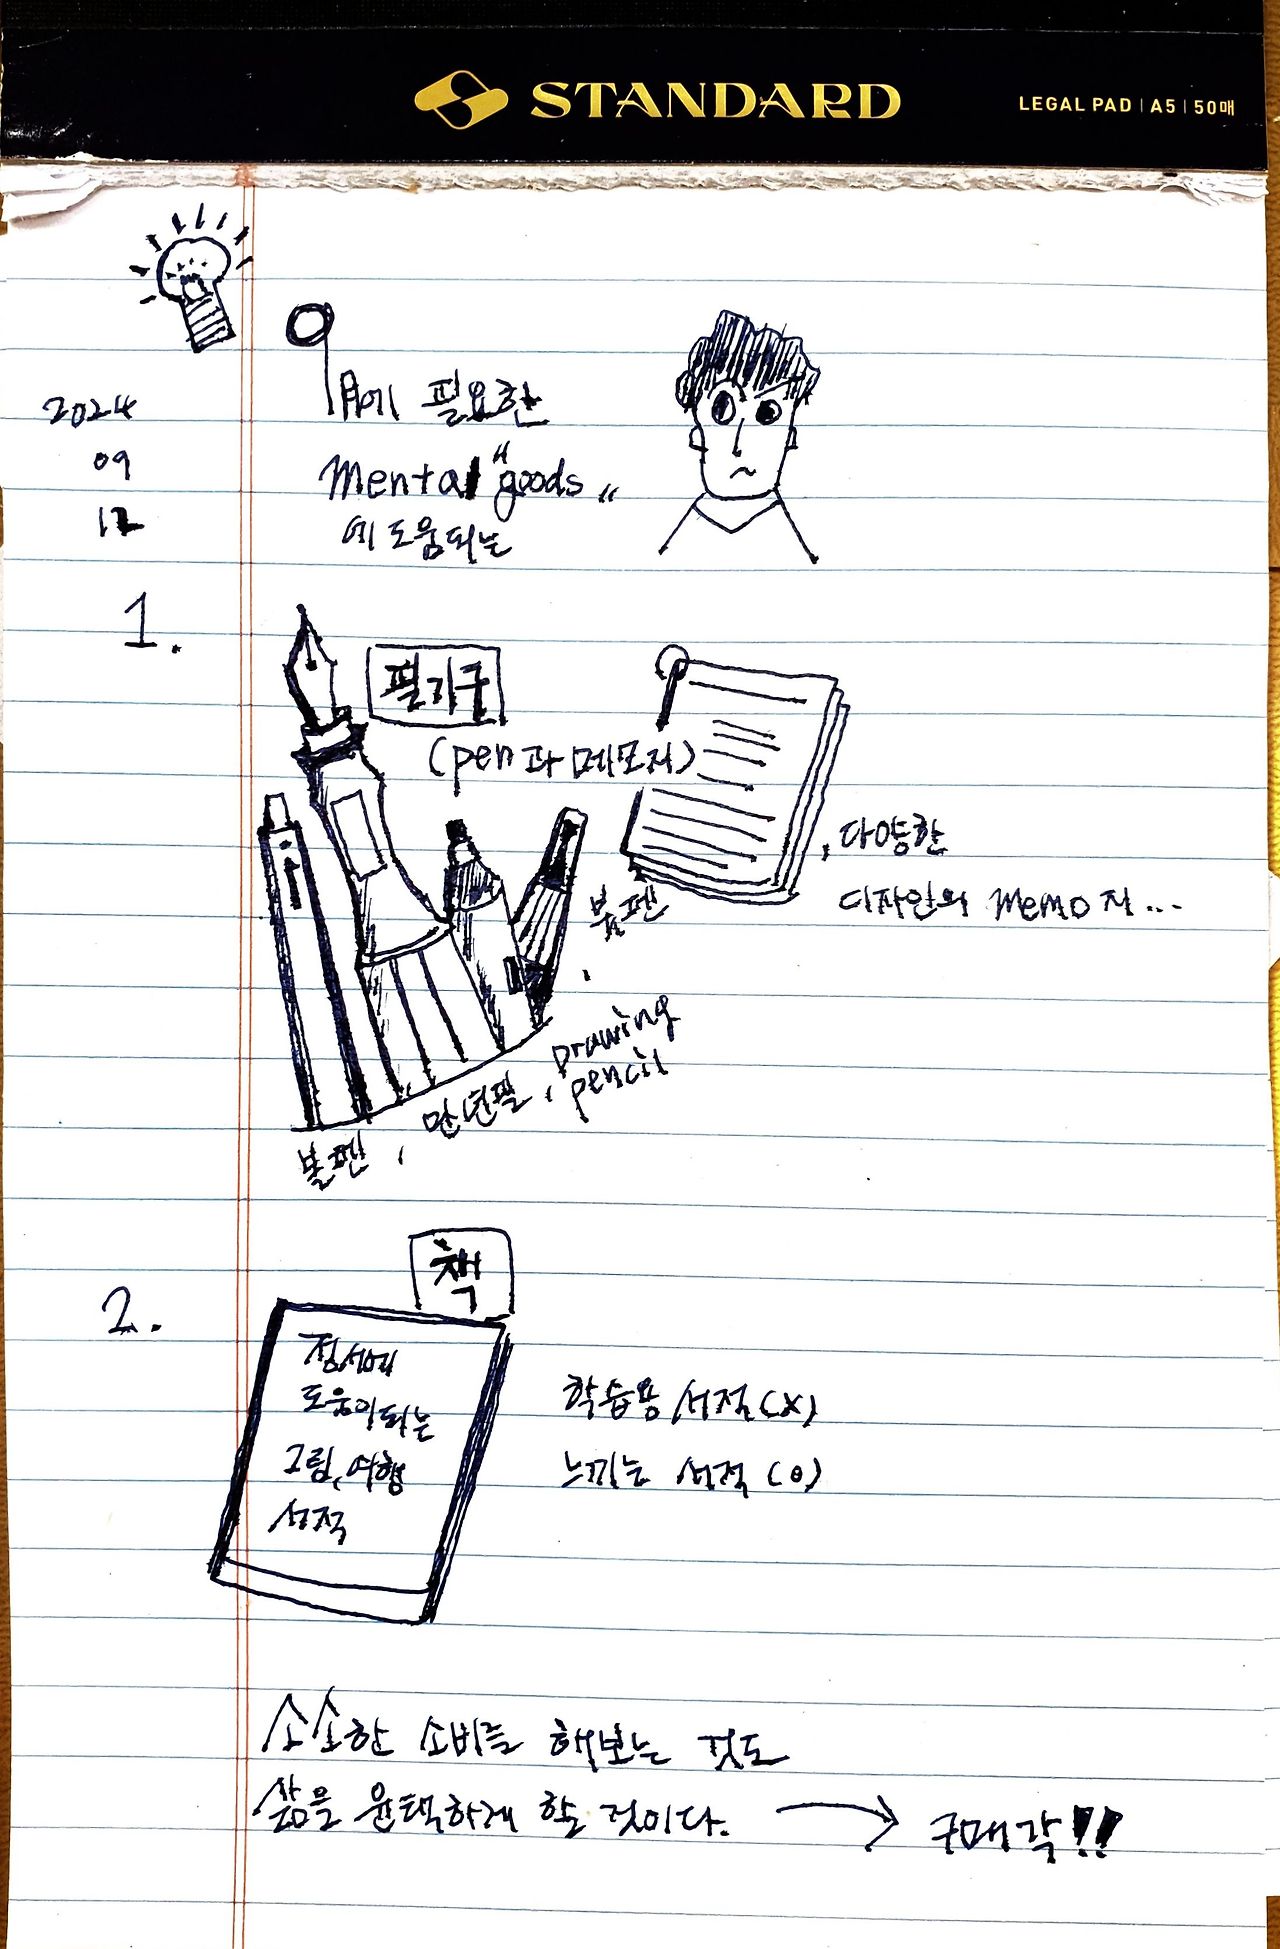 STANDARD
LEGAL PAD | A5 | 50매
2024
09
12
에 필요한
Mental "goods"
에 도움되는
1.
필기구
(pen과 메모지)
다양한
디자인의 memo지...
볼펜
볼펜, 만년필, Drawing
pencil
2.
책
정서에
도움이되는
그림, 여행
서적
학습용 서적(X)
느끼는 서적(O)
소소한 소비를 해보는 것도
삶을 윤택하게 할 것이다. → 구매각!!